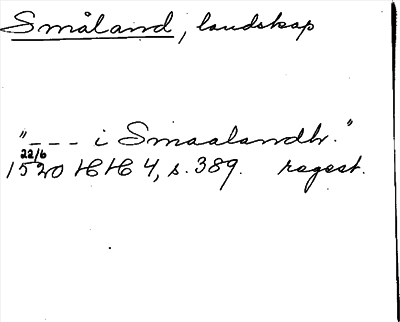 Småland, landskap
"--- i Smaalandh."
22/6
1520 HH 4, s. 389. regest.